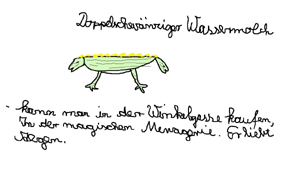 Doppelschwänziger Wassermolch
- kann man in der Winkelgasse kaufen,
In der magischen Menagerie. Er liebt
Algen.